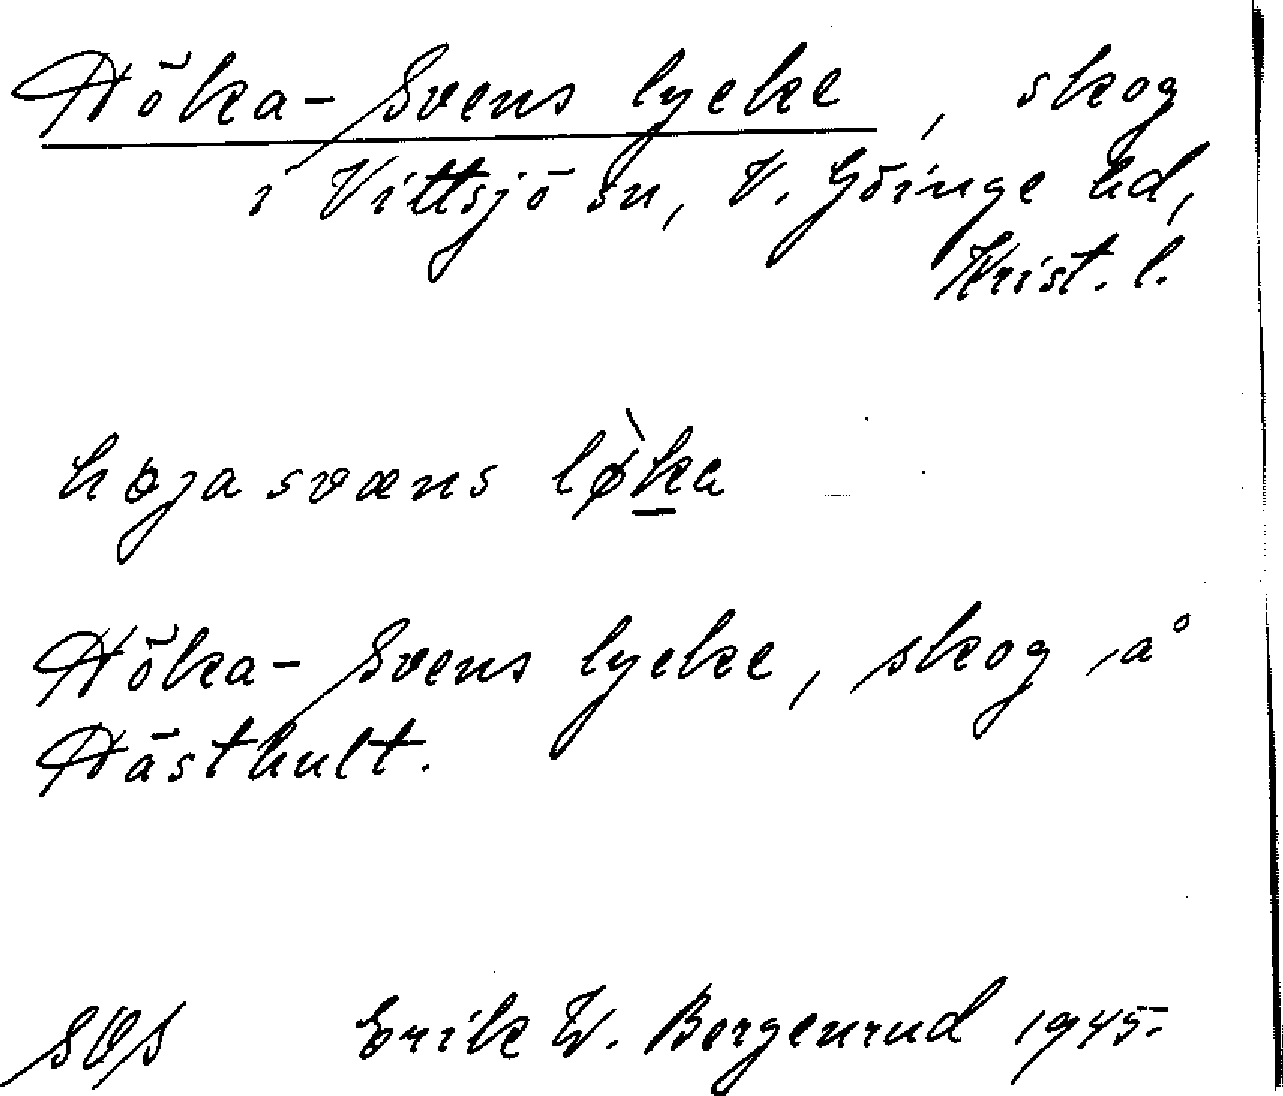 Höka-Svens lycke, skog
i Vittsjö sn, V. Göinge hd,
Krist. l.
høja svæns lø̀ka
Höka-Svens lycke, skog å
Hästhult.
SOS Erik W. Borgenrud 1945.